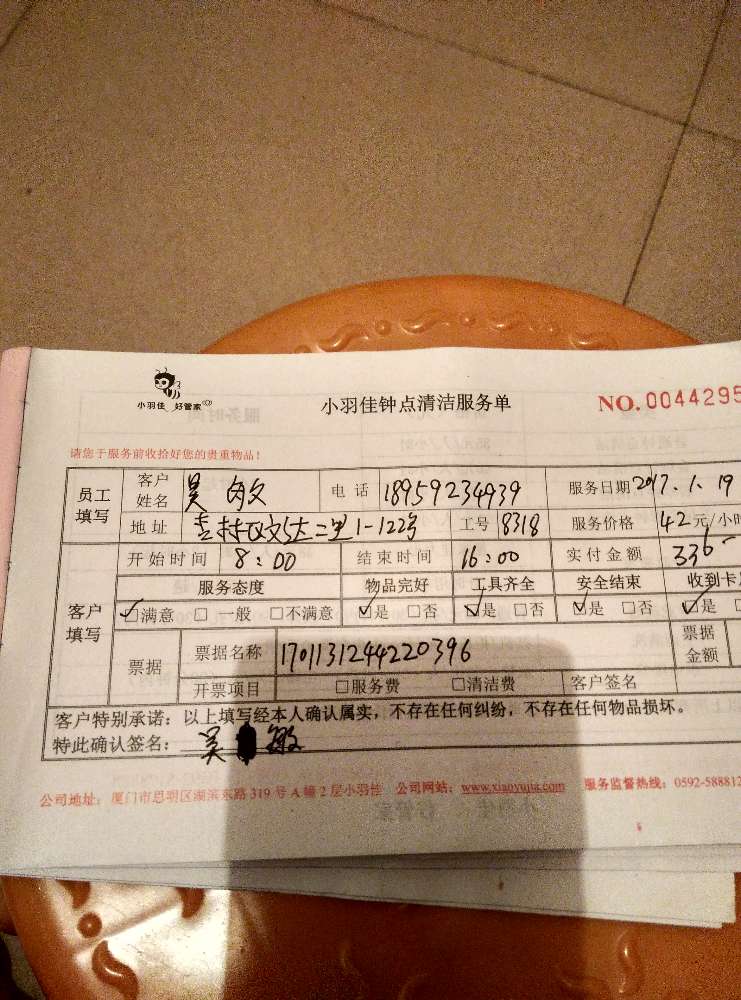 小羽佳 好管家
小羽佳钟点清洁服务单
NO. 0044295
请您于服务前收拾好您的贵重物品!
员工填写 客户姓名 吴 电话 18959234939 服务日期 2017.1.19
地址 二里1-122号 工号 8318 服务价格 42元/小
客户填写 开始时间 8:00 结束时间 16:00 实付金额 336-
服务态度 物品完好 工具齐全 安全结束 收到卡
☑满意 □一般 □不满意 ☑是 □否 ☑是 □否 ☑是 □否 ☑是
票据 票据名称 1701131244220396 票据金额
开票项目 □服务费 □清洁费 客户签名
客户特别承诺:以上填写经本人确认属实,不存在任何纠纷,不存在任何物品损坏。
特此确认签名: 吴 敏
公司地址:厦门市思明区湖滨东路 319 号 A 幢 2 层小羽佳 公司网站:www.xiaoyujia.com 服务监督热线:0592-588812